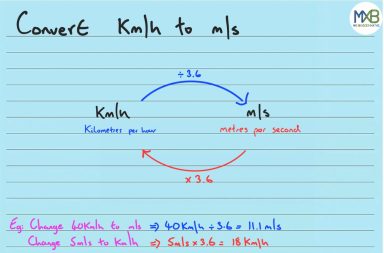 Convert Km/h to m/s
MXB
÷3.6
Km/h m/s
Kilometres per hour metres per second
x 3.6
Eg: Change 40Km/h to m/s ⇒ 40Km/h ÷ 3.6 = 11.1m/s
Change 5m/s to Km/h ⇒ 5m/s x 3.6 = 18 Km/h